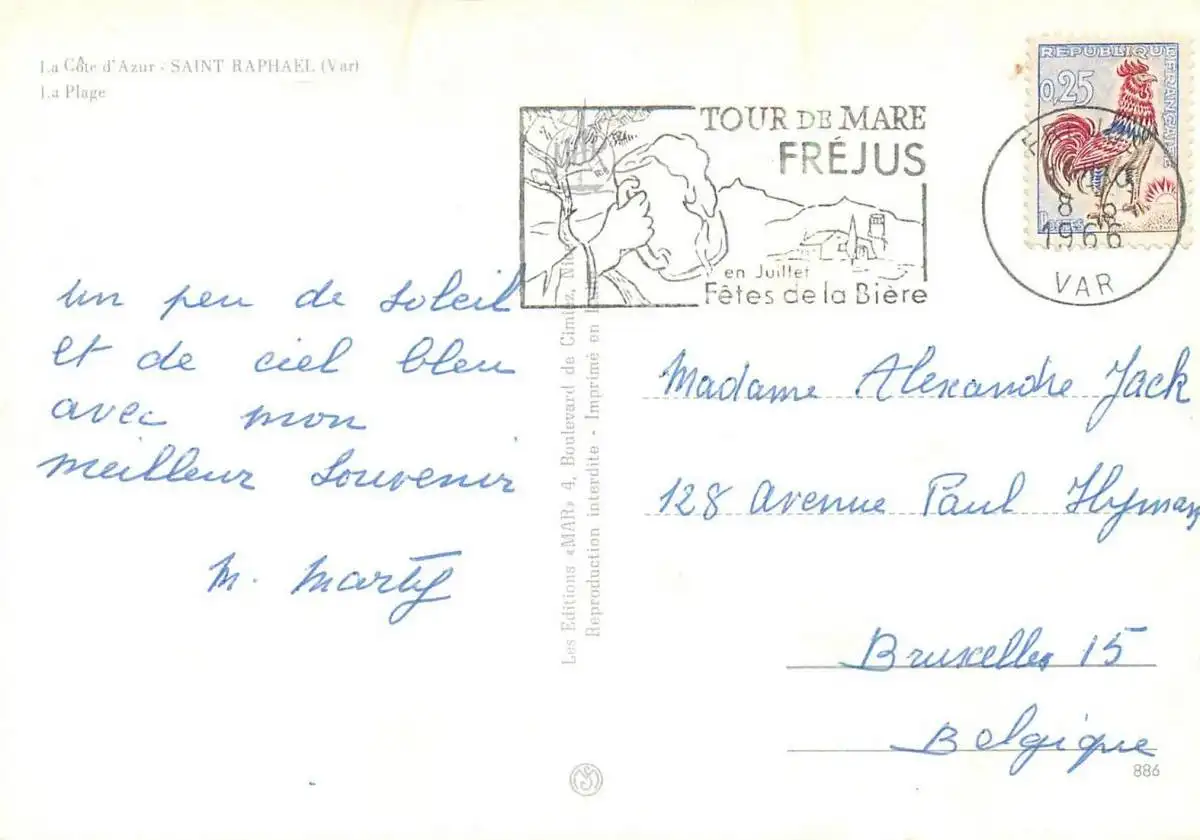 La Côte d'Azur - SAINT RAPHAEL (Var)
La Plage
TOUR DE MARE
FRÉJUS
en Juillet
Fêtes de la Bière
REPUBLIQUE FRANÇAISE
0,25
POSTES
8
1966
VAR
un peu de soleil
et de ciel bleu
avec mon
meilleur souvenir
M. Marty
Les Editions «MAR» 4, Boulevard de Cimiez,
Reproduction interdite - Imprimé en
Madame Alexandre Jack
128 avenue Paul Hymans
Bruxelles 15
Belgique
886